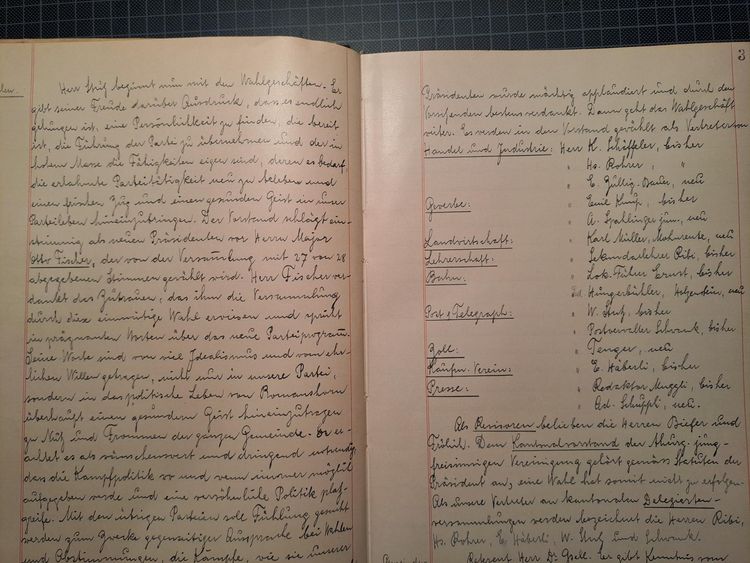 Herr Stutz beginnt nun mit den Wahlgeschäften. Er
gibt seiner Freude darüber Ausdruck, dass es endlich
gelungen ist, eine Persönlichkeit zu finden, die bereit
ist, die Führung der Partei zu übernehmen und der in
hohem Masse die Fähigkeiten eigen sind, deren es bedarf,
die erlahmte Parteitätigkeit neu zu beleben und
einen frischen Zug und einen gesunden Geist in unser
Parteileben hineinzubringen. Der Vorstand schlägt ein-
stimmig als neuen Präsidenten vor Herrn Major
Otto Fischer, der von der Versammlung mit 27 von 28
abgegebenen Stimmen gewählt wird. Herr Fischer ver-
dankt das Zutrauen, das ihm die Versammlung
durch diese einmütige Wahl erwiesen und spricht
in prägnanten Worten über das neue Parteiprogramm.
Seine Worte sind von viel Idealismus und vom ehr-
lichen Willen getragen, nicht nur in unsere Partei,
sondern in das politische Leben von Romanshorn
überhaupt einen gesundern Geist hineinzutragen
zu Nutz und Frommen der ganzen Gemeinde. Er er-
achtet es als wünschenswert und dringend notwendig
dass die Kampfpolitik wo und wenn immer möglich
aufgegeben werde und eine versöhnliche Politik platz-
greife. Mit den übrigen Parteien soll Fühlung gesucht
werden zum Zwecke gegenseitiger Aussprache bei Wahlen
und Abstimmungen, die Kämpfe, wie sie unserer
3
Präsidenten wurde mächtig applaudiert und durch den
Vorsitzenden bestens verdankt. Dann geht das Wahlgeschäft
weiter. Es werden in den Vorstand gewählt als Vertreter von
Handel und Industrie: Herr K. Schäffeler, bisher
" Hs. Rohrer, "
" E. Züllig-Bauer, neu
Gewerbe: " Emil Knup, bisher
" A. Spahlinger jun, neu
Landwirtschaft: " Karl Müller, Mohnrente, neu
Lehrerschaft: " Sekundarlehrer Ribi, bisher
Bahn: " Lok. Führer Ernst, bisher
Hungerbühler, Holzenstein, neu
" W. Stutz, bisher
Post & Telegraph: " Postverwalter Schwank, bisher
Zoll: " Tanger, neu
Kaufm. Verein: " E. Häberli, bisher
Presse: " Redaktor Muggli, bisher
" Ad. Schüpfli, neu.
Als Revisoren belieben die Herren Biefer und
Frühil. Dem Kantonalvorstand der thurg. jung-
freisinnigen Vereinigung gehört gemäss Statuten der
Präsident an, eine Wahl hat somit nicht zu erfolgen.
Als unsere Vertreter an kantonalen Delegierten-
versammlungen werden bezeichnet die Herren Ribi,
Hs. Rohrer, E. Häberli, W. Stutz und Schwank.
Referent Herr Dr. Gsell. Er gibt Kenntnis vom